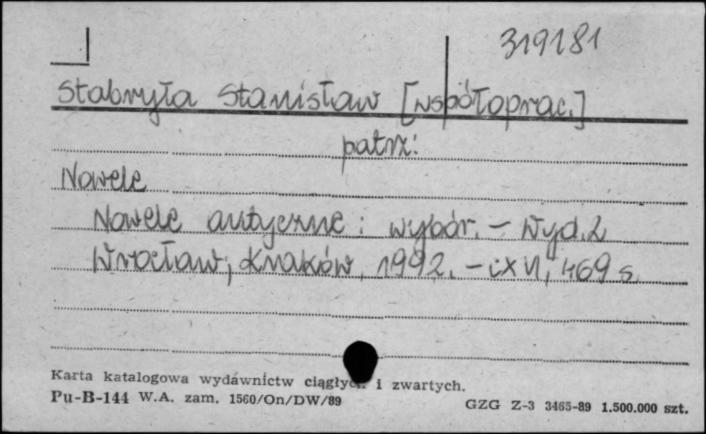 319181
Stabryła Stanisław [współoprac.]
patrz:
Nowele
Nowele antyczne : wybór. – Wyd. 2
Wrocław; Kraków, 1992. – CXVI, 469 s.
Karta katalogowa wydawnictw ciągłych i zwartych.
Pu-B-144 W.A. zam. 1560/On/DW/89
GZG Z-3 3465-89 1.500.000 szt.